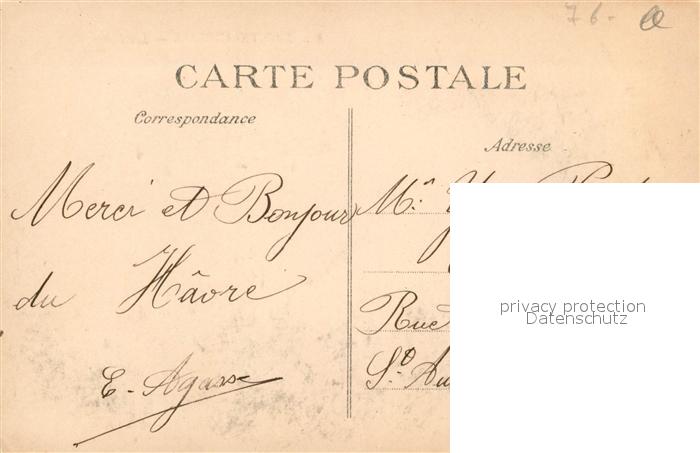 76-
CARTE POSTALE
Correspondance
Adresse
Merci et Bonjour
du Hâvre
E. Agasse
Mr
Rue
St. Au
privacy protection
Datenschutz